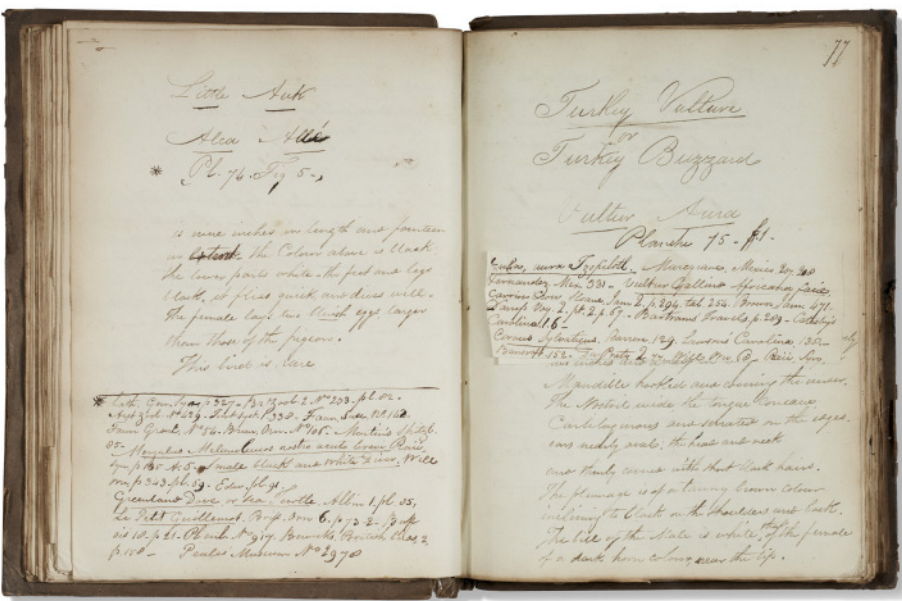 Little Auk
Alca Allé
* Pl. 74. Fig 5 -
is nine inches in length and fourteen
in extent. the Colour above is black
the lower parts white - the feet and legs
black, it flies quick and dives well.
The female lays two eggs larger
than those of the pigeon.
This bird is rare
* Lath. Gen. Syn. p. 327 - Br. Zool. 2. No 233. pl. 82 -
Arct. Zool. No 429 - p. 338 - Faun. Suec. No 142
Faun. Groenl. No 54. Brun. Orn. No 106 - Martin's Spitzb.
85 - Mergulus Melanoleucos rostro acuto brevi Raii,
syn. p. 125. A. 5. small black and white Diver. Will
orn. p. 343. pl. 59 - Edw. pl. 91.
Greenland Dove or Sea Turtle. Albin 1. pl. 85,
Le Petit Guillemot. Bris. Orn. 6. p. 73 - 2 - Buff
ois 18. p. 21 - Pl. enl. No 917. Bewick's British Birds, 2.
p. 158 - Peales Museum No 2978
77
Turkey Vulture
or
Turkey Buzzard
Vultur Aura
Planche 75 - f. 1 -
aura Tzopilotl - Mexico
Hernandez Mex. 331 - Vultur Gallinae Africanae facie,
Sloane Jam. 2. p. 294. tab. 254. Brown Jam. 471.
Damp. Voy. 2. pt. 2. p. 67 - Bartram's Travels p. 289 - Catesby's
Carolina 1. 6 -
Corvus Sylvaticus, Barrere 129. Lawson's Carolina, 138 -
Bancroft 152 -
Mandible hooked and covering the under.
The Nostril wide the tongue concave
Cartilaginous and serrated on the edges.
ears nearly oval; the head and neck
are thinly covered with short black hairs.
The plumage is of a tawny brown colour
inclining to black on the shoulders and back.
The bill of the Male is white, that of the female
of a dark horn colour, near the tip.